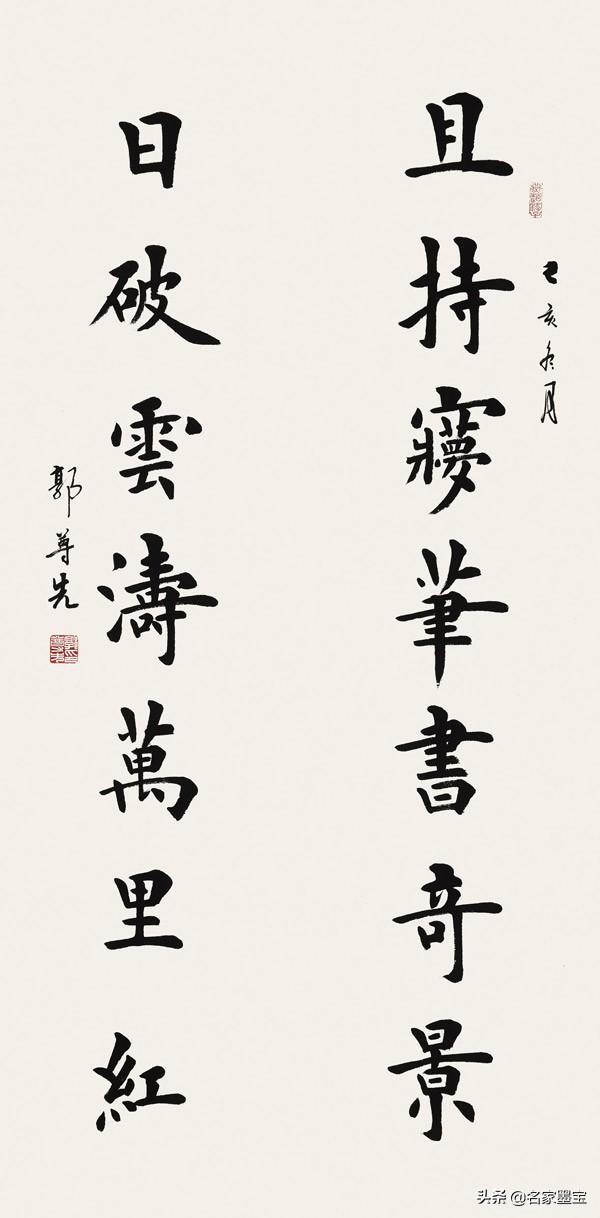 己亥冬月
且持㝱筆書奇景
日破雲濤萬里紅
郭尊先
头条 @名家墨宝